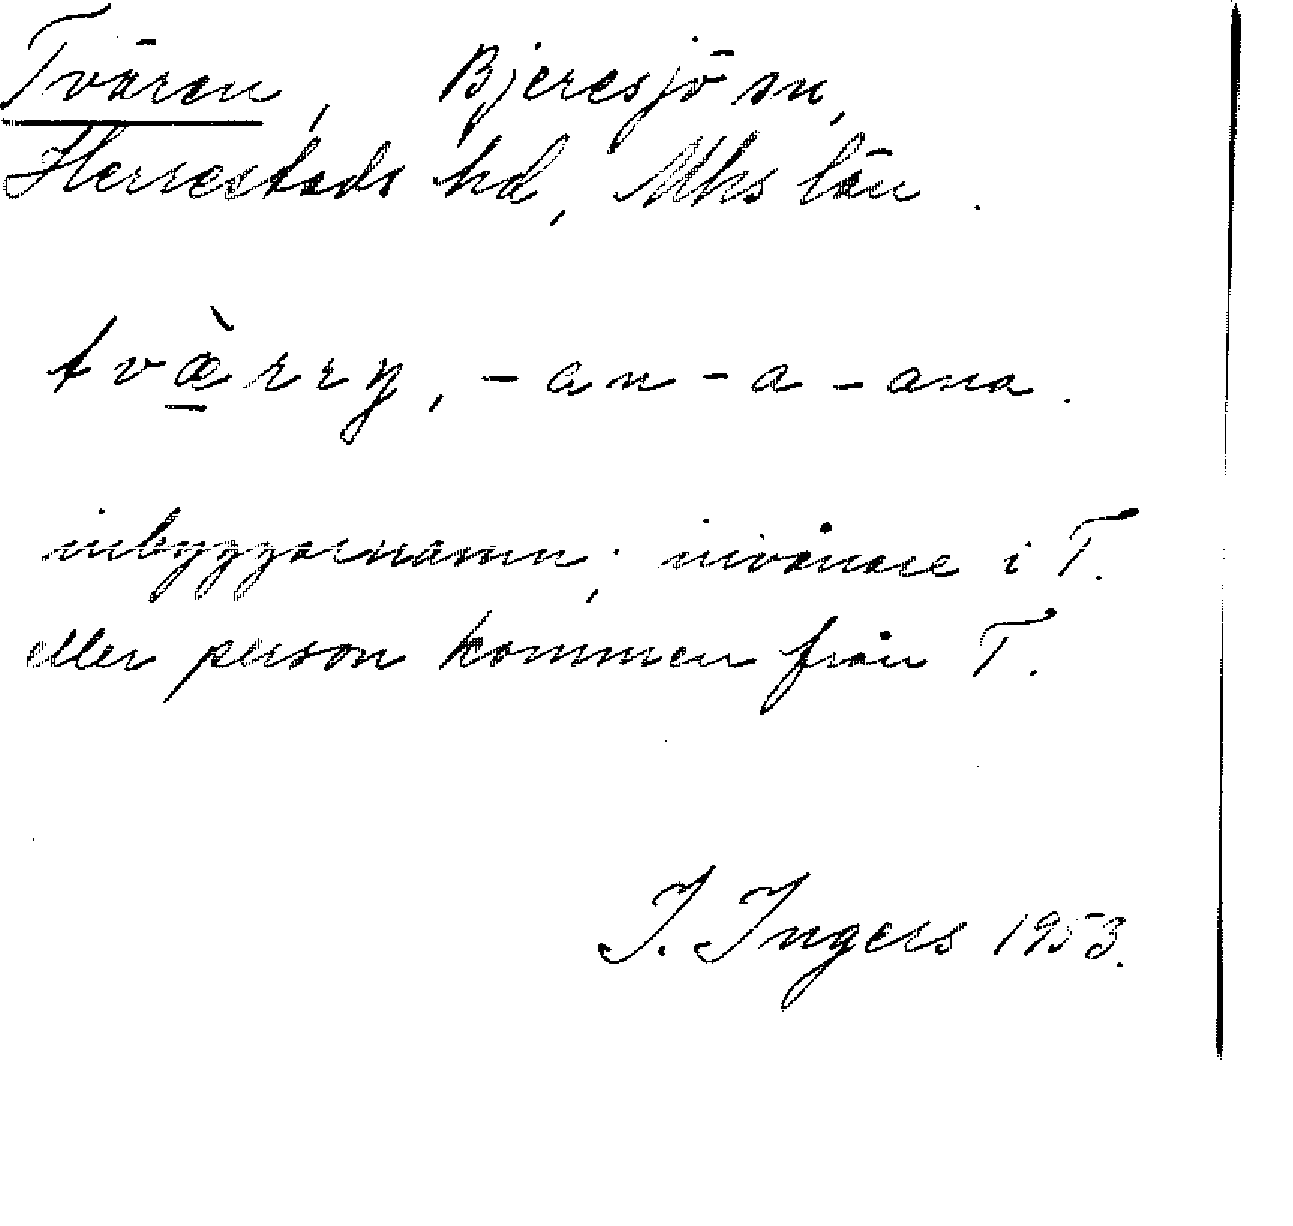 Tvären, Bjeresjö sn,
Herrestads hd, Mhs län.
tvæ̱̀rry, -an -a -ana.
inbyggarnamn; invånare i T.
eller person kommen från T.
I. Ingers 1953.